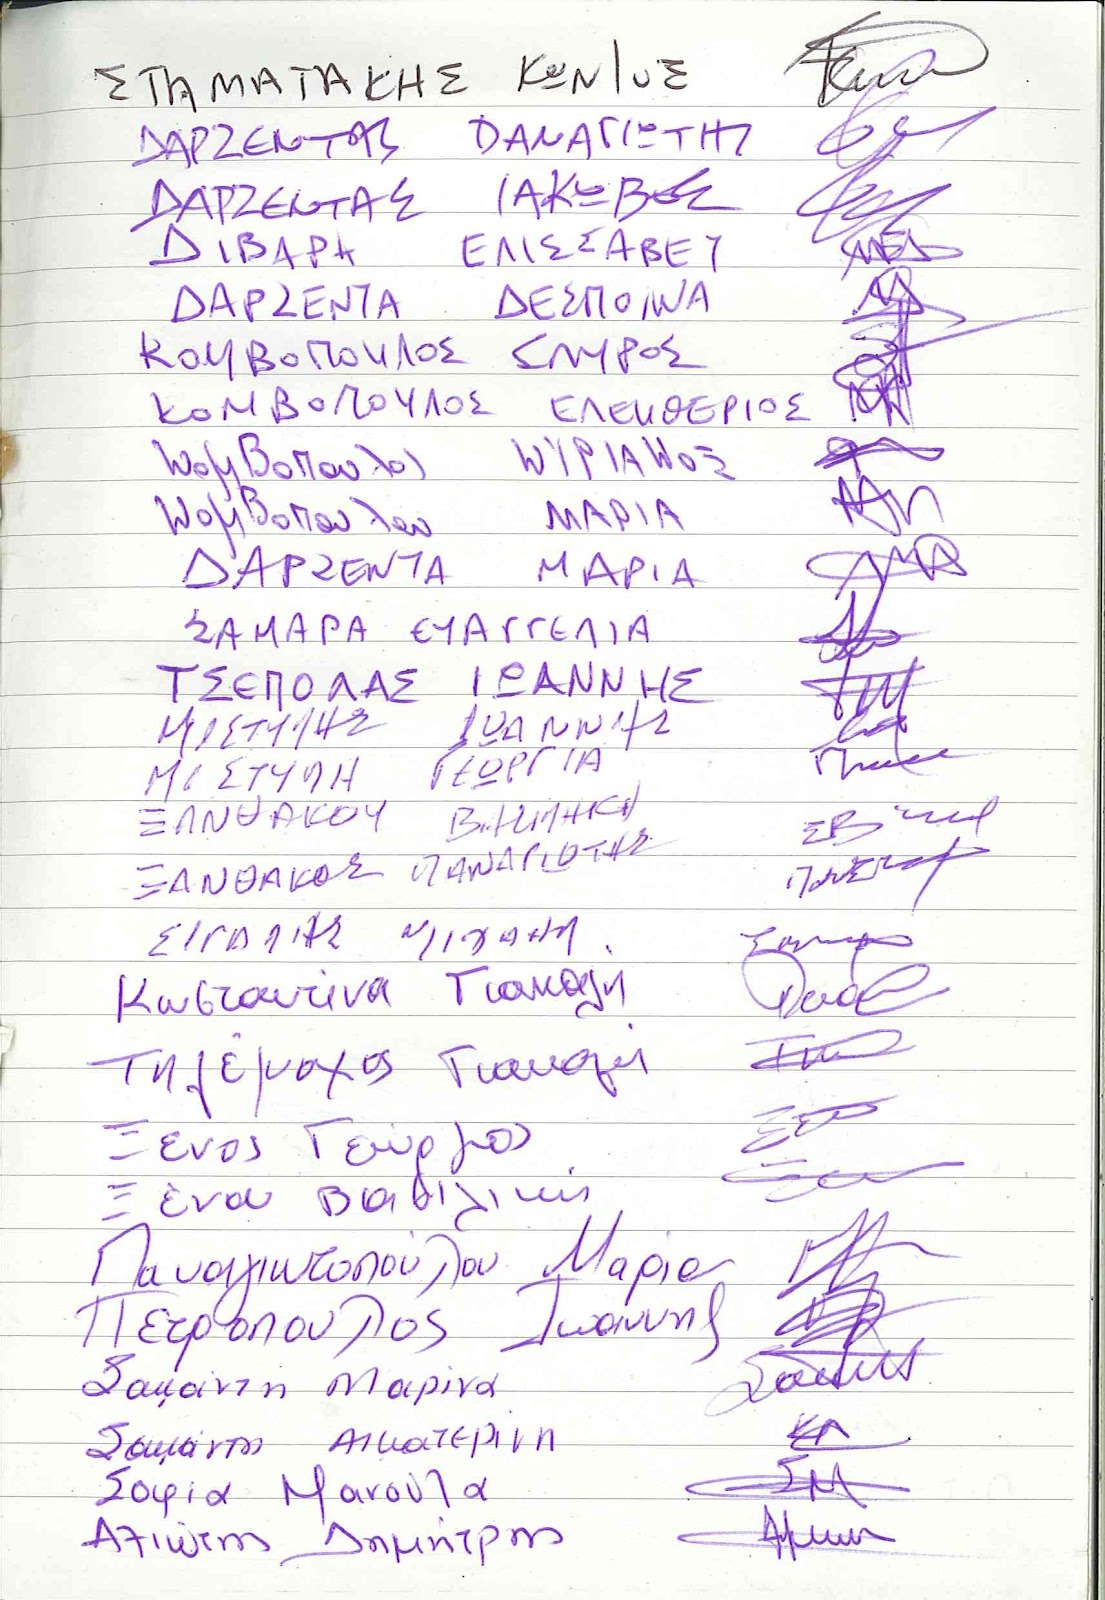 ΣΤΑΜΑΤΑΚΗΣ ΚΩΝ/ΟΣ
ΔΑΡΖΕΝΤΑΣ ΠΑΝΑΓΙΩΤΗΣ
ΔΑΡΖΕΝΤΑΣ ΙΑΚΩΒΟΣ
ΔΙΒΑΡΗ ΕΛΙΣΣΑΒΕΤ
ΔΑΡΖΕΝΤΑ ΔΕΣΠΟΙΝΑ
ΚΟΜΒΟΠΟΥΛΟΣ ΣΠΥΡΟΣ
ΚΟΜΒΟΠΟΥΛΟΣ ΕΛΕΥΘΕΡΙΟΣ
Κομβοπουλος ΚΥΡΙΑΚΟΣ
Κομβοπουλου ΜΑΡΙΑ
ΔΑΡΖΕΝΤΑ ΜΑΡΙΑ
ΣΑΜΑΡΑ ΕΥΑΓΓΕΛΙΑ
ΤΣΕΠΟΛΑΣ ΙΩΑΝΝΗΣ
ΜΙΣΤΥΛΗΣ ΙΩΑΝΝΗΣ
ΜΙΣΤΥΛΗ ΓΕΩΡΓΙΑ
ΞΑΝΘΑΚΟΥ
ΞΑΝΘΑΚΟΣ ΠΑΝΑΓΙΩΤΗΣ
ΣΙΓΑΛΗΣ
Κωσταντίνα Γιακαλή
Τηλέμαχος Γιακαλή
Ξενος Γεώργιος
Ξένου Βασιλική
Παναγιωτοπούλου Μαρία
Πετρόπουλος Ιωάννης
Σαμάντη Μαρίνα
Σαμάντη Αικατερίνη ΚΛ
Σοφία Μανούλα ΣΜ
Αλιώτης Δημήτρης